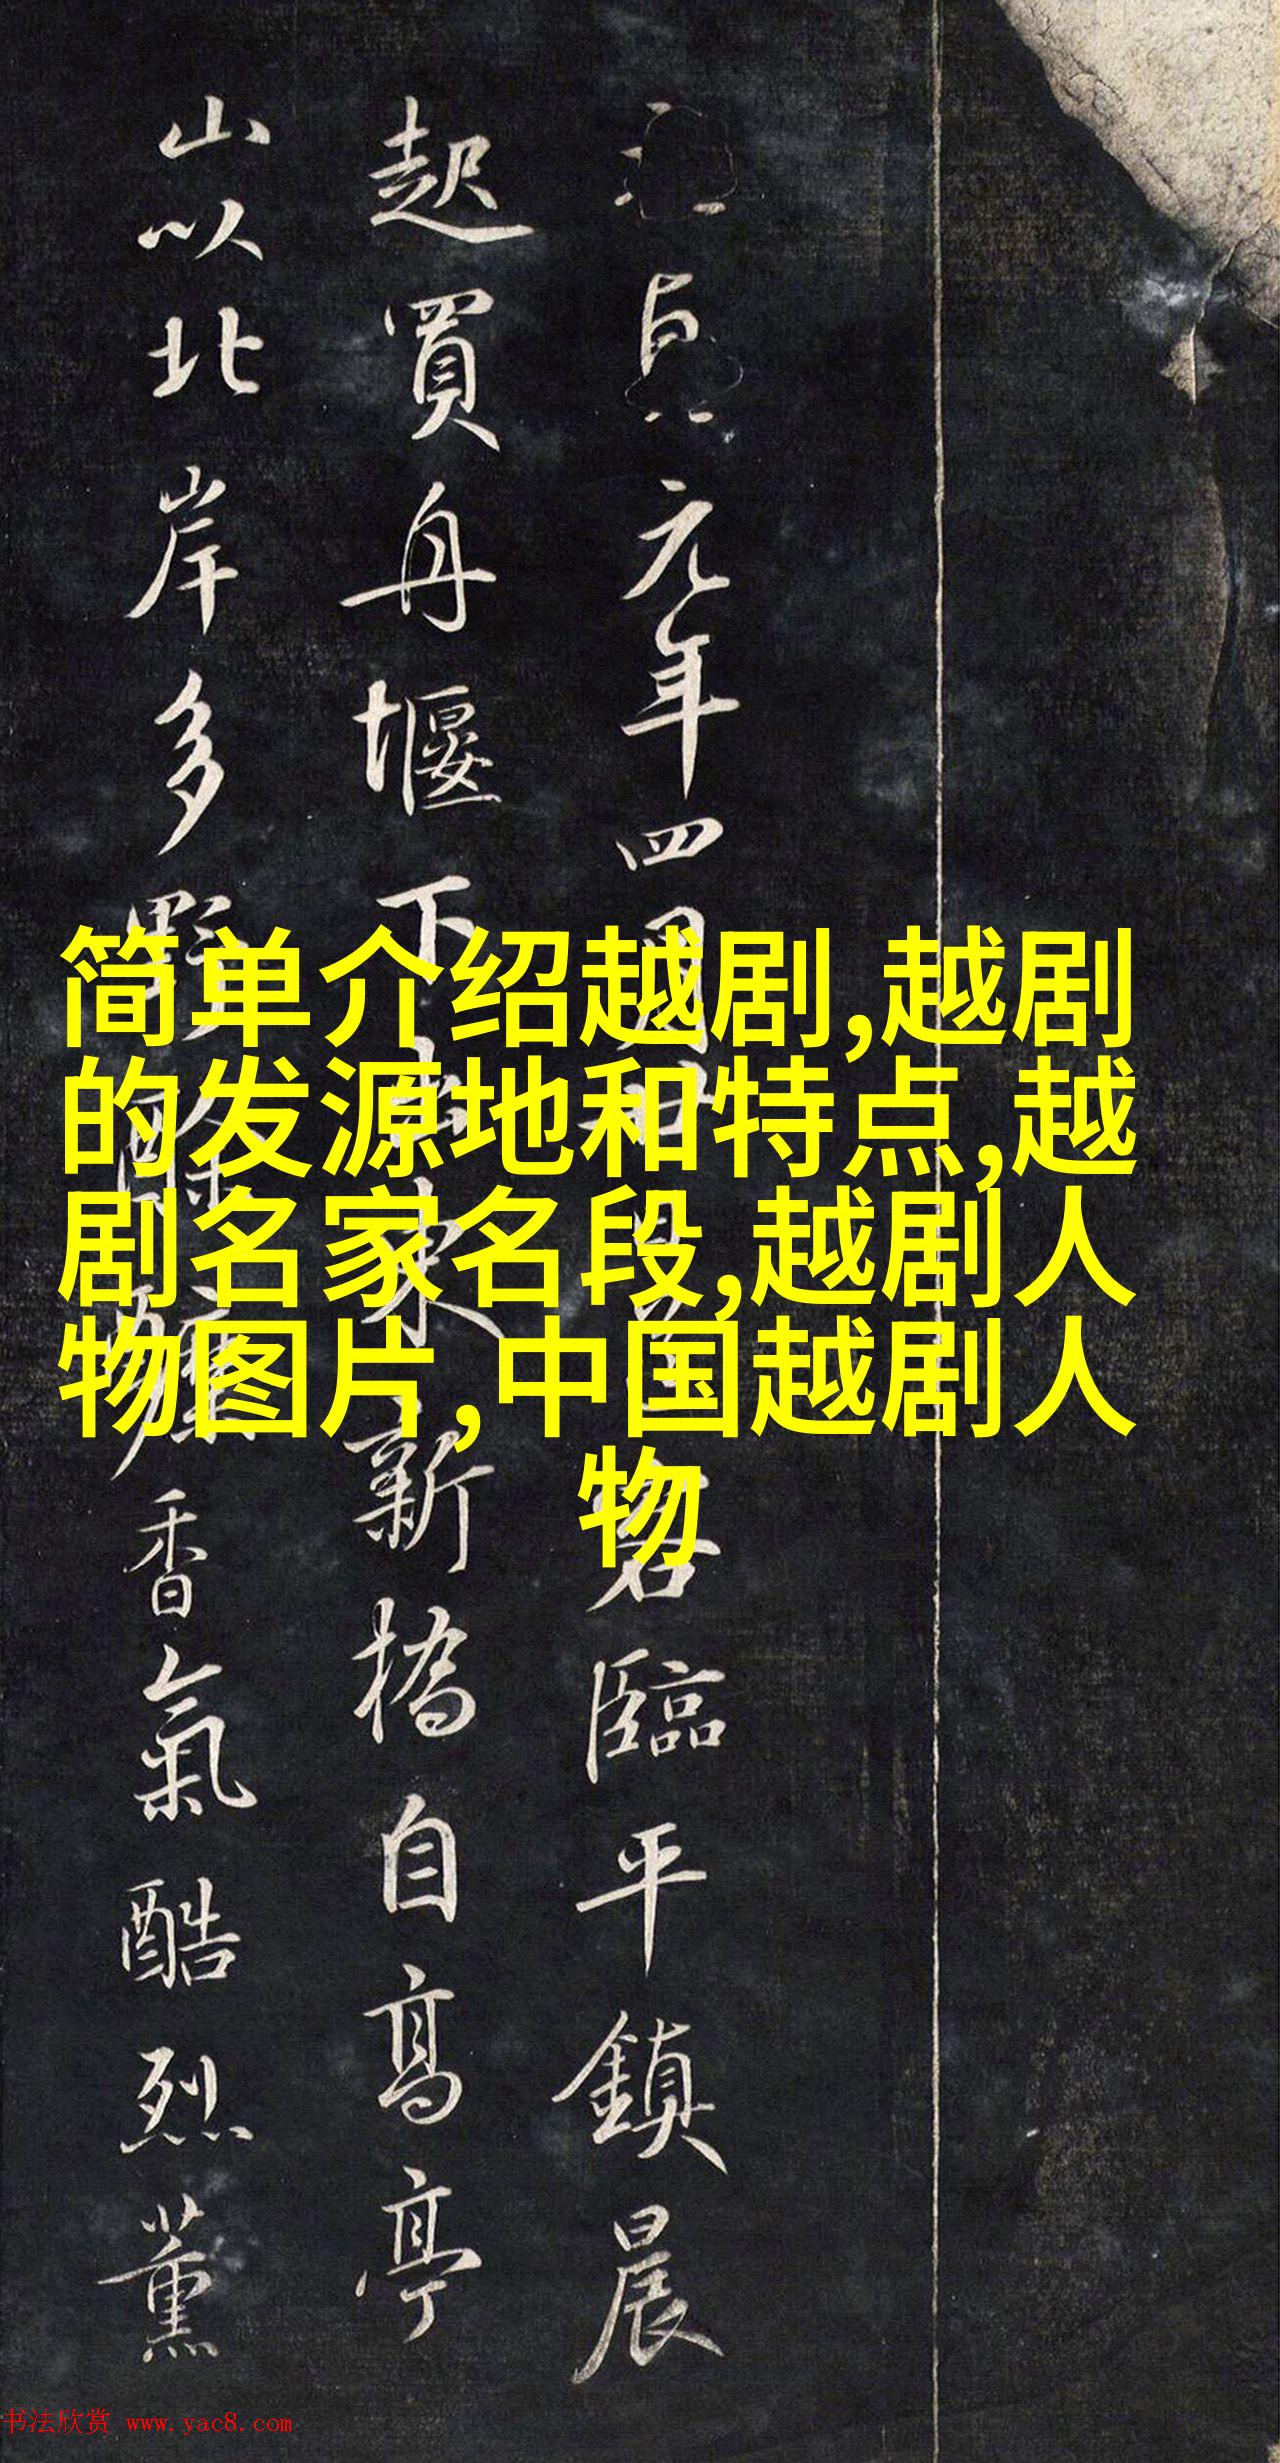 简单介绍越剧,越剧
的发源地和特点,越
剧名家名段,越剧人
物图片,中国越剧人
物
元年四月
臨平鎮晨
起買舟堰下
東新橋自高亭
山以北岸多野
香氣酷烈薰
书法欣赏 www.yac8.com